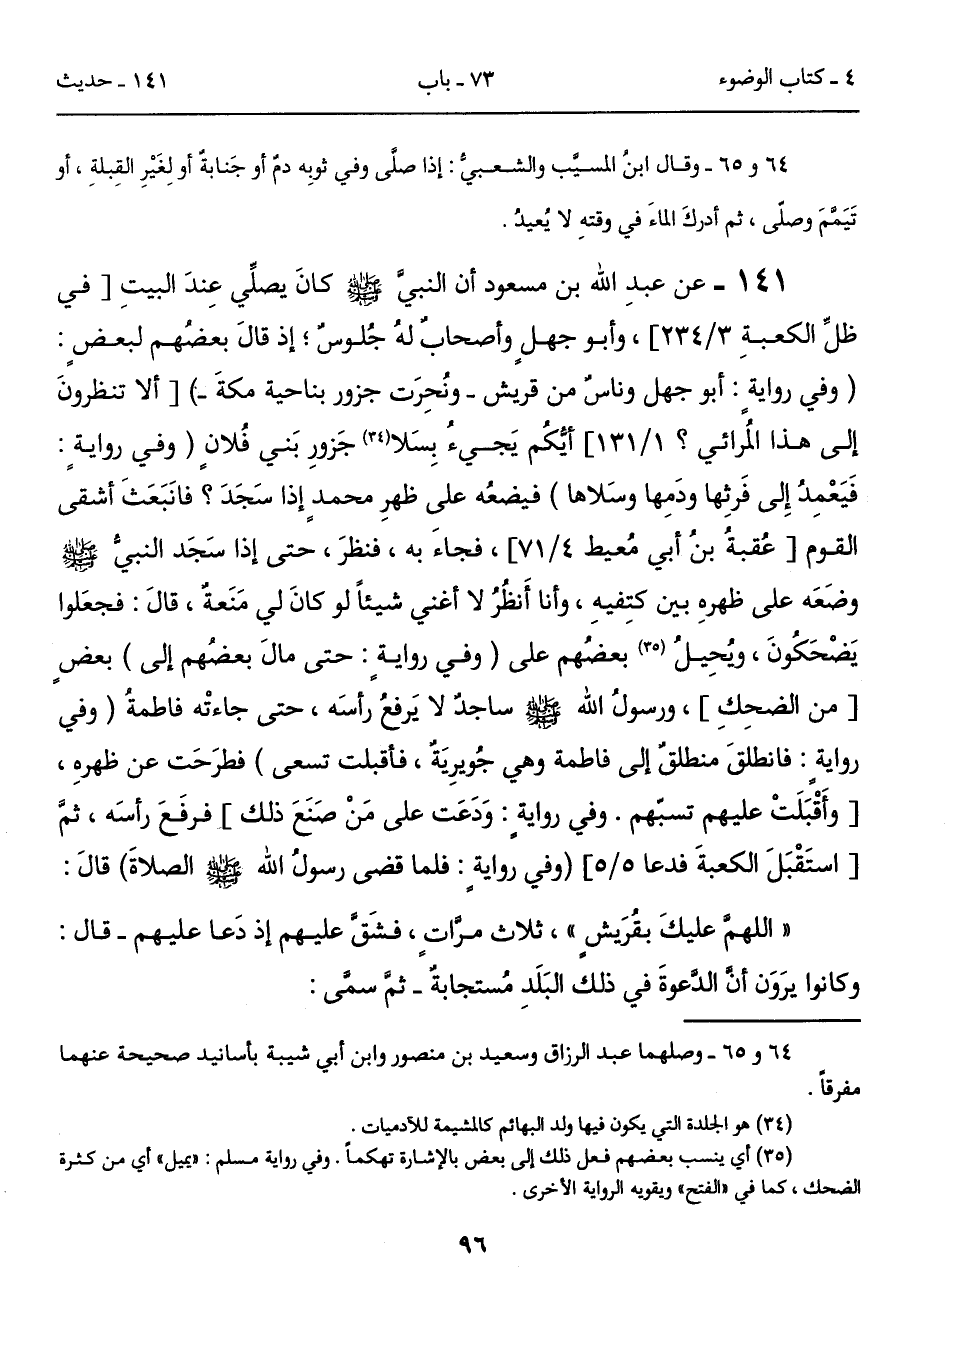 ٤ ـ كتاب الوضوء ٧٣ ـ باب ١٤١ ـ حديث
٦٤ و ٦٥ ـ وقـال ابنُ المسيَّب والشعـبيُّ : إذا صلَّى وفي ثوبِه دمٌ أو جَنابةٌ أو لِغَيْرِ القِبلةِ ، أو
تَيَمَّمَ وصلَّى ، ثم أدركَ الماءَ في وقتهِ لا يُعيدُ .
١٤١ ـ عن عبدِ الله بن مسعود أن النبيَّ ﷺ كانَ يصلِّي عِندَ البيتِ [ في
ظلِّ الكعبةِ ٢٣٤/٣] ، وأبو جهلٍ وأصحابٌ لهُ جُلوسٌ ؛ إذ قالَ بعضُهم لبعضٍ :
( وفي روايةٍ : أبو جهل وناسٌ من قريش ـ ونُحِرَت جزور بناحية مكةَ ـ) [ ألا تنظرونَ
إلى هذا المُرائي ؟ ١٣١/١] أيُّكم يَجيءُ بِسَلا(٣٤) جَزورِ بَني فُلانٍ ( وفي روايةٍ :
فَيَعْمِدُ إلى فَرثِها ودَمِها وسَلاها ) فيضعُه على ظهرِ محمدٍ إذا سَجَدَ ؟ فانبَعَثَ أشقى
القوم [ عُقبةُ بنُ أبي مُعيط ٧١/٤] ، فجاءَ به ، فنظرَ ، حتى إذا سَجَد النبيُّ ﷺ
وضَعَه على ظهرهِ بين كتِفيهِ ، وأنا أَنظُرُ لا أغني شيئاً لو كانَ لي مَنَعةٌ ، قالَ : فجعَلوا
يَضْحَكُونَ ، ويُحِيلُ (٣٥) بعضُهم على ( وفي روايةٍ : حتى مالَ بعضُهم إلى ) بعضٍ
[ من الضحِكِ ] ، ورسولُ الله ﷺ ساجدٌ لا يَرفعُ رأسَه ، حتى جاءتْه فاطمةُ ( وفي
روايةٍ : فانطلقَ منطلقٌ إلى فاطمة وهي جُويريَةٌ ، فأقبلت تسعى ) فطرَحَت عن ظهرهِ ،
[ وأَقْبَلَتْ عليهم تسبّهم . وفي روايةٍ : وَدَعَت على مَنْ صَنَعَ ذلك ] فرفَعَ رأسَه ، ثمَّ
[ استَقْبَلَ الكعبةَ فدعا ٥/٥] (وفي روايةٍ : فلما قضى رسولُ الله ﷺ الصلاةَ) قالَ :
« اللهمَّ عليكَ بقُرَيشٍ » ، ثلاث مرَّاتٍ ، فشَقَّ عليهم إذ دَعا عليهم ـ قال :
وكانوا يرَوَن أنَّ الدَّعوةَ في ذلك البَلَدِ مُستجابةٌ ـ ثمَّ سمَّى :
٦٤ و ٦٥ ـ وصلهما عبد الرزاق وسعيد بن منصور وابن أبي شيبة بأسانيد صحيحة عنهما
مفرقاً .
(٣٤) هو الجلدة التي يكون فيها ولد البهائم كالمشيمة للآدميات .
(٣٥) أي ينسب بعضهم فعل ذلك إلى بعض بالإشارة تهكماً . وفي رواية مسلم : «يميل» أي من كثرة
الضحك ، كما في «الفتح» ويقويه الرواية الأخرى .
٩٦